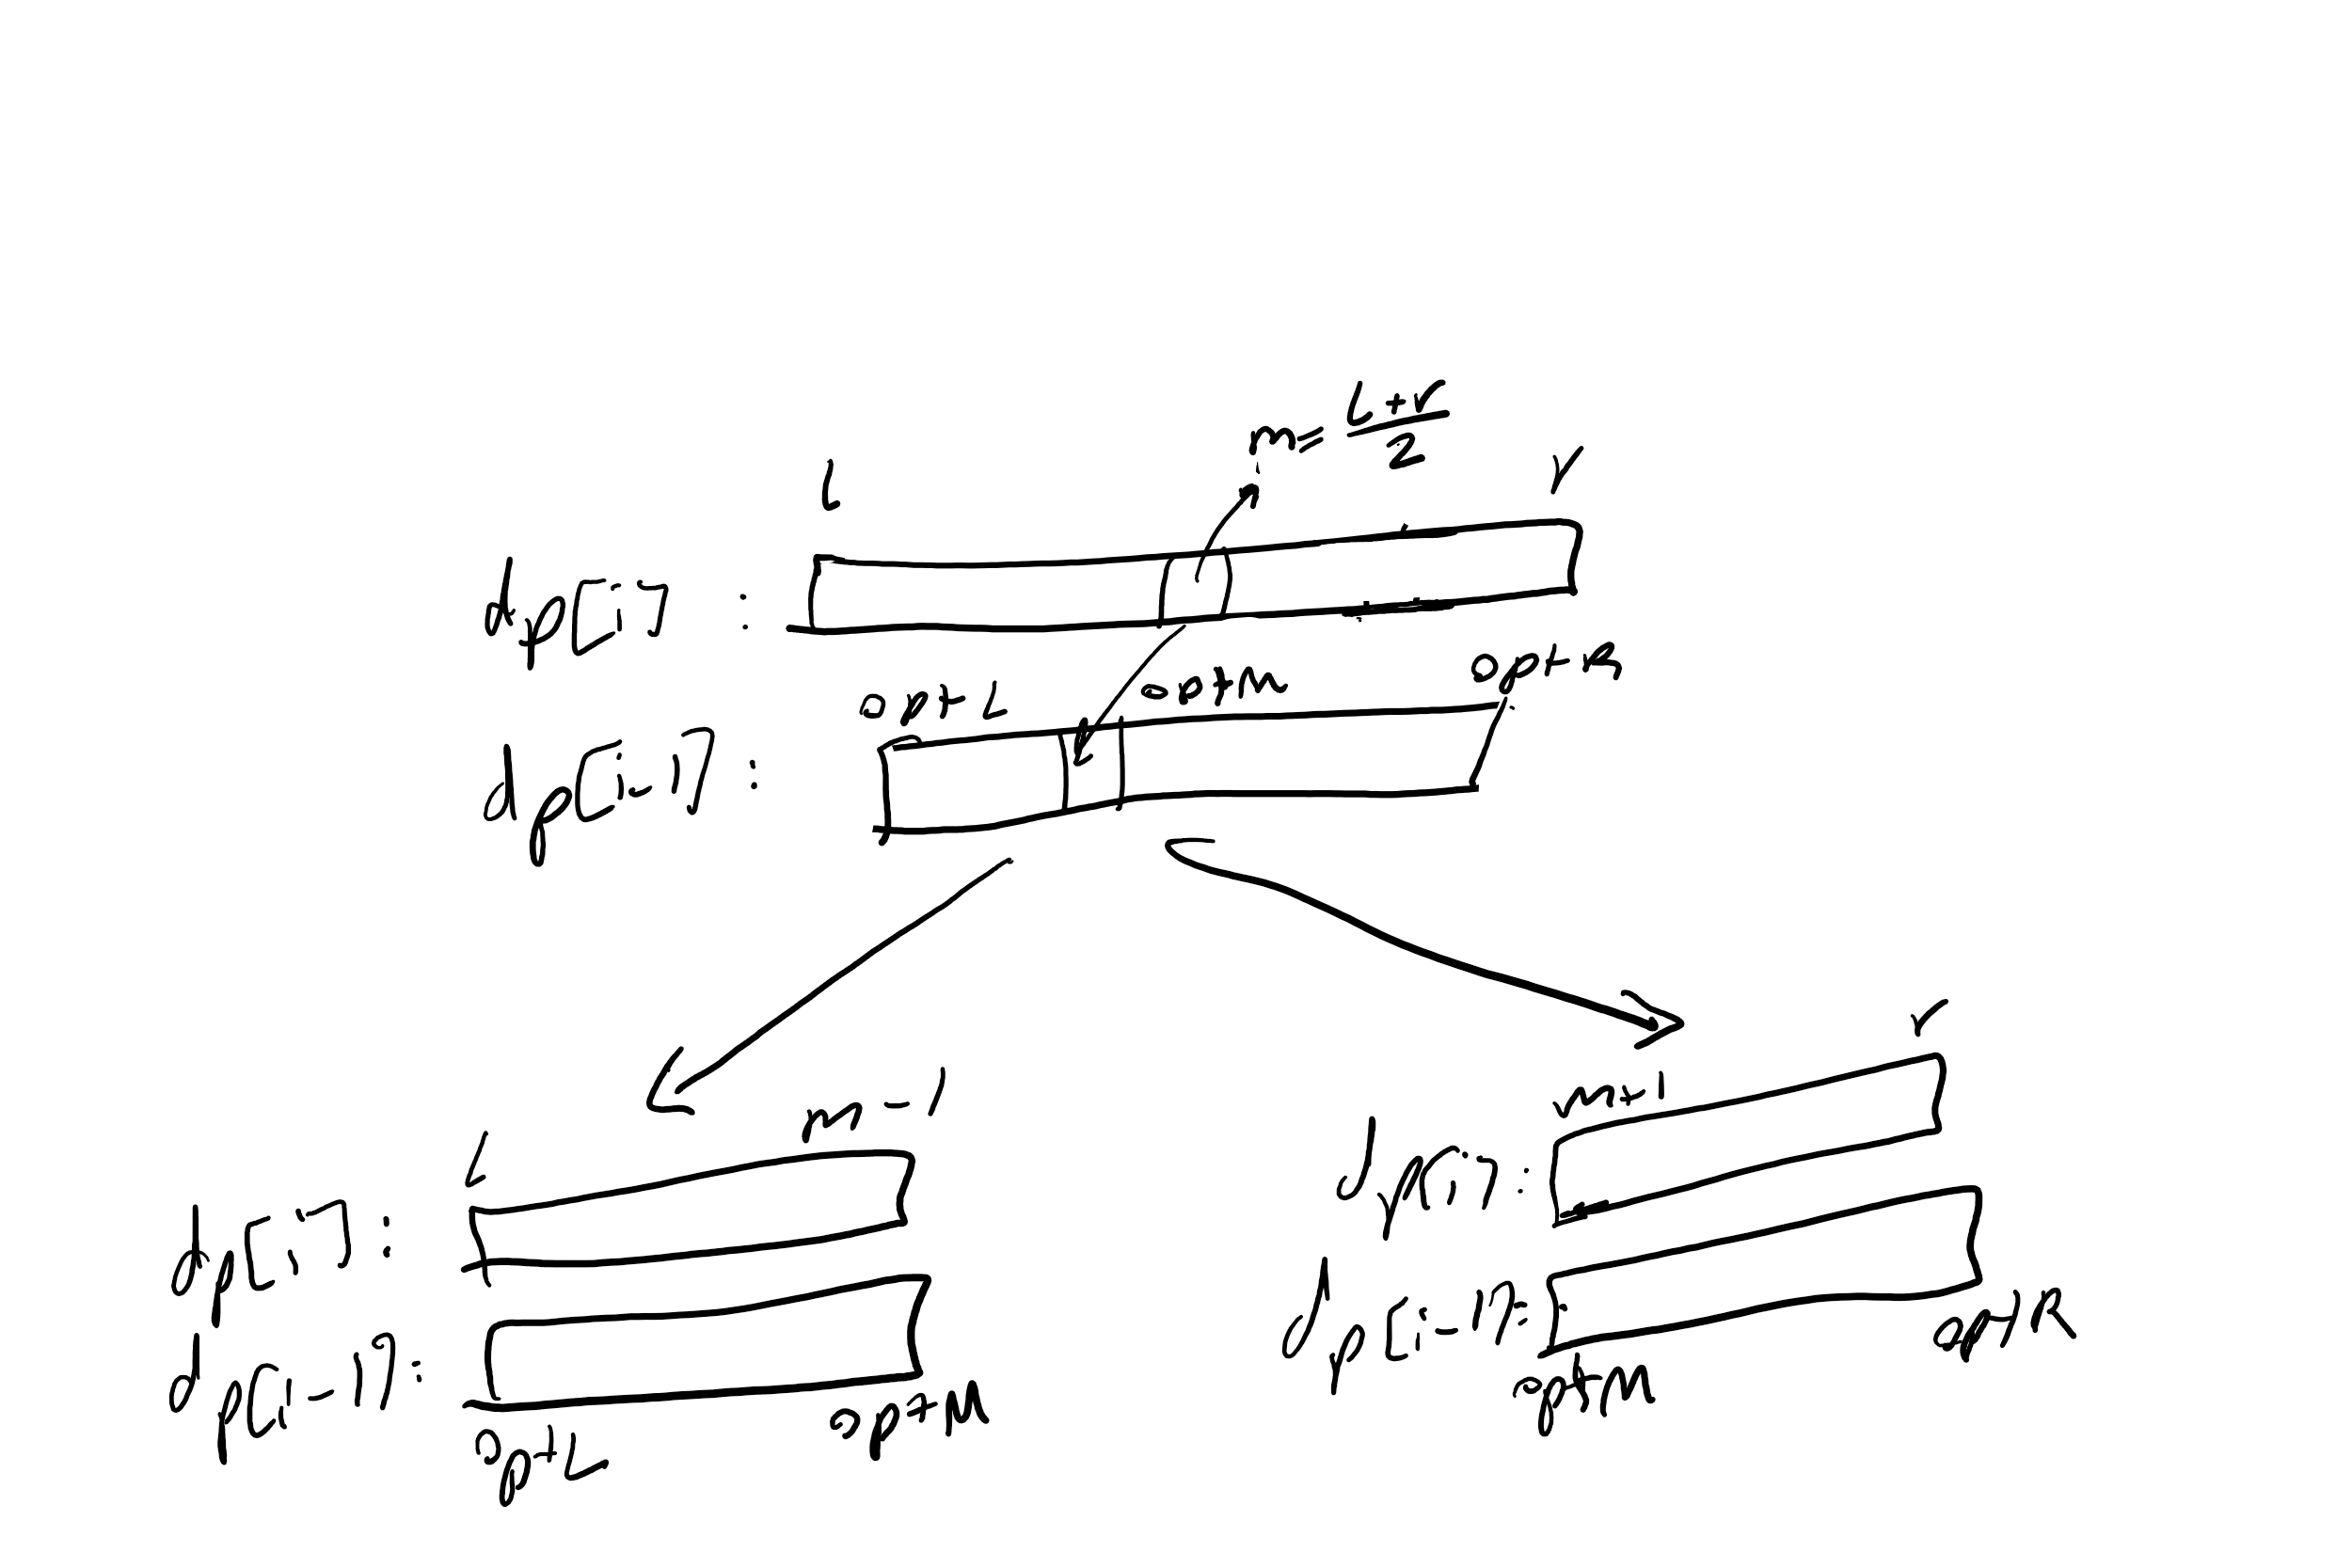 m = L+r / 2
L r
dp[i] :
optL optM optR
dp[i-1] :
L m-1
dp[i] :
dp[i-1] :
optL optM
m+1 r
dp[i] :
dp[i-1] :
optM optR